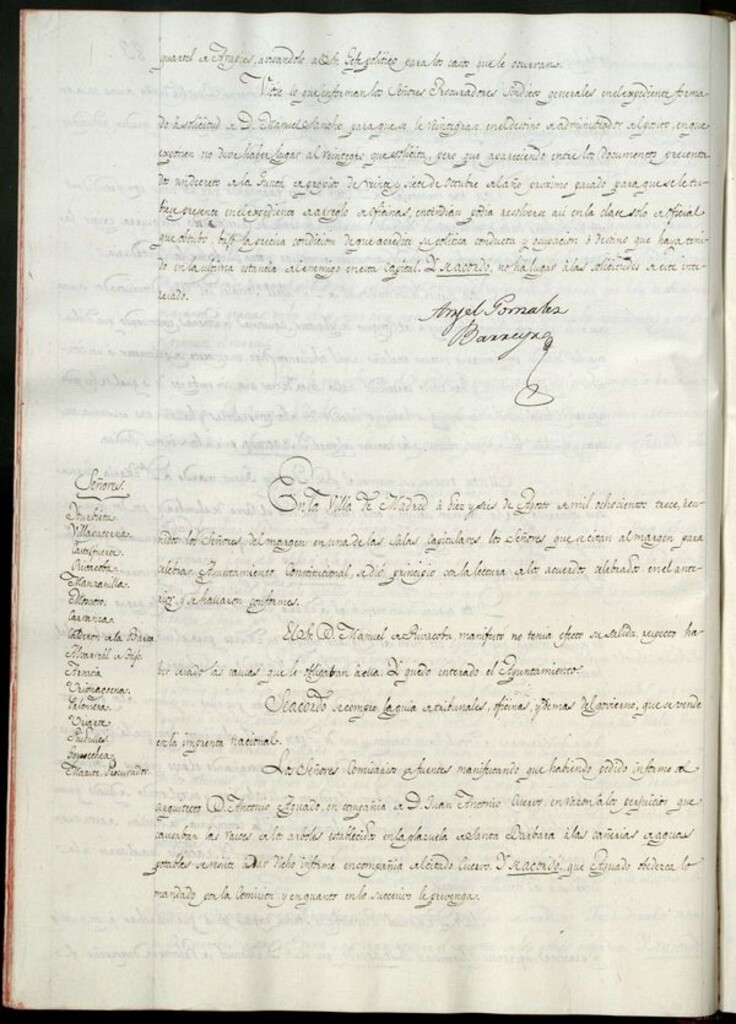 quartel de avisandolo al Sr. Gefe politico para los casos que le ocurran.
Vióse lo que informan los Señores Procuradores Sindicos generales en el expediente forma-
do á solicitud de D. Manuel Sancho para que se le reintegrase en el destino de administrador del posito, en que
exponen no debe haber lugar al reintegro que solicita, pero que apareciendo entre los documentos presenta-
dos un decreto de la Junta de propios de veinte y siete de Octubre del año proximo pasado para que se le tu-
biese presente en el expediente de arreglo de oficinas, entendian podia resolverse asi en la clase solo de oficial
que obtubo bajo la precisa condicion de que acredite su politica conducta y ocupacion ó destino que haya teni-
do en la ultima estancia del enemigo en esta Capital. Y se acordó, no ha lugar á las solicitudes de este inte-
resado.
Angel Gonzalez
Barreyro
Señores.
Villanueva.
Santa
Rivacoba.
Manzanilla.
Carranza.
Calderon de la Barca
Francia
Palomera.
Ugarte.
Goycochea
Procurador
En la Villa de Madrid á diez y seis de Agosto de mil ochocientos trece, reu-
nidos los Señores del margen en una de las Salas Capitulares los Señores que se citan al margen para
celebrar Ayuntamiento Constitucional, se dió principio con la lectura de los acuerdos celebrados en el ante-
rior, y se hallaron conformes.
El Sr. D. Manuel de Rivacoba, manifestó no tenia efecto su salida, respecto ha-
ber cesado las causas que le obligaban á ella. Y quedó enterado el Ayuntamiento.
Se acordó se compre la guia de tribunales, oficinas, y demas del govierno, que se vende
en la imprenta nacional.
Los Señores Comisarios de fuentes manifestando que habiendo pedido informe al
arquitecto D. Antonio Aguado, en compañia de D. Juan Antonio Cuervo, en razon á los perjuicios que
causaban las raices de los arboles establecidos en la plazuela de Santa Barbara á las cañerias de aguas
potables se resiste dar dicho informe en compañia del citado Cuervo. Y se acordó, que Aguado obedezca lo
mandado por la Comision y en quanto en lo succesivo le prevenga.